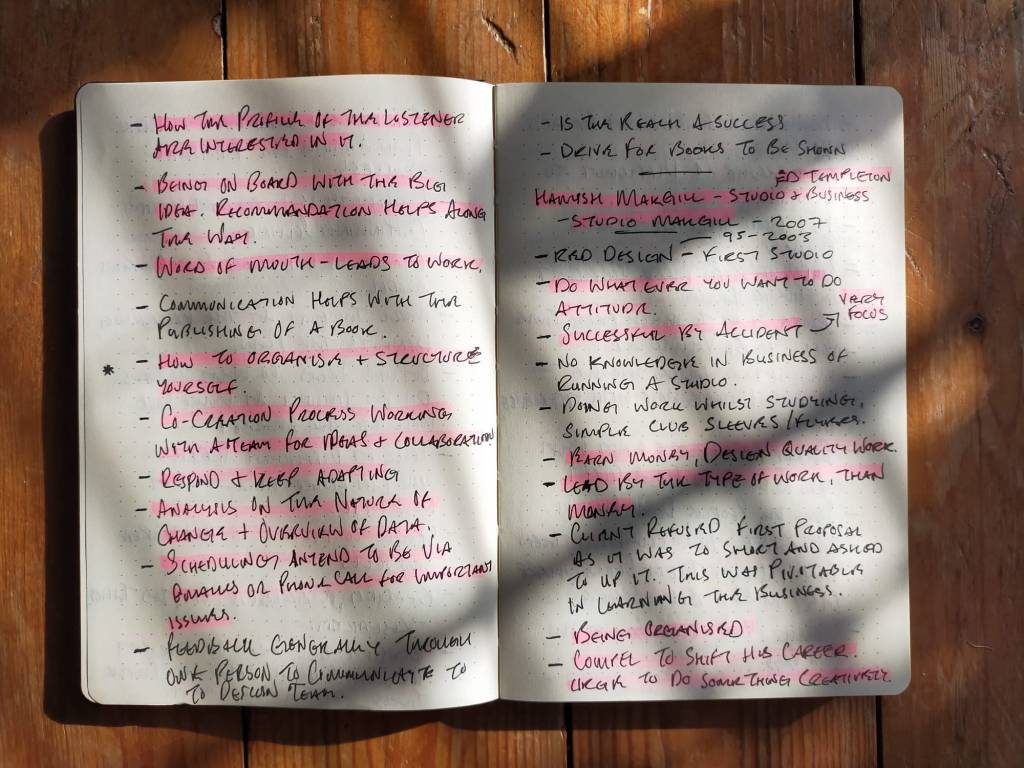 - HOW THE PROFILE OF THE LISTENER
ARE INTERESTED IN IT.
- BEING ON BOARD WITH THE BIG
IDEA. RECOMMANDATION HELPS ALONG
THE WAY.
- WORD OF MOUTH - LEADS TO WORK.
- COMMUNICATION HELPS WITH THE
PUBLISHING OF A BOOK.
* - HOW TO ORGANISE + STRUCTURE
YOURSELF.
- CO-CREATION PROCESS WORKING
WITH A TEAM FOR IDEAS + COLLABORATION
- RESPOND + KEEP ADAPTING
- ANALYSIS ON THE NATURE OF
CHANGE + OVERVIEW OF DATA.
- SCHEDULING ANTEND TO BE VIA
EMAILS OR PHONE CALL FOR IMPORTANT
ISSUES.
- FEEDBACK GENERALLY THROUGH
ONE PERSON TO COMMUNICATE TO
TO DESIGN TEAM.
- IS THE REACH A SUCCESS
- DRIVE FOR BOOKS TO BE SHOWN
ED TEMPLETON
HAMISH MAKGILL - STUDIO + BUSINESS
- STUDIO MAKGILL - 2007
95-2003
- RED DESIGN - FIRST STUDIO
- DO WHAT EVER YOU WANT TO DO
ATTITUDE.
VERY
FOCUS
- SUCCESSFUL BY ACCIDENT
- NO KNOWLEDGE IN BUSINESS OF
RUNNING A STUDIO.
- DOING WORK WHILST STUDYING,
SIMPLE CLUB SLEEVES/FLYERS.
- EARN MONEY, DESIGN QUALITY WORK.
- LEAD BY THE TYPE OF WORK, THAN
MONEY.
- CLIENT REFUSED FIRST PROPOSAL
AS IT WAS TO SHORT AND ASKED
TO UP IT. THIS WAS PIVOTABLE
IN LEARNING THE BUSINESS.
- BEING ORGANISED
- COMPEL TO SHIFT HIS CAREER.
URGE TO DO SOMETHING CREATIVELY.